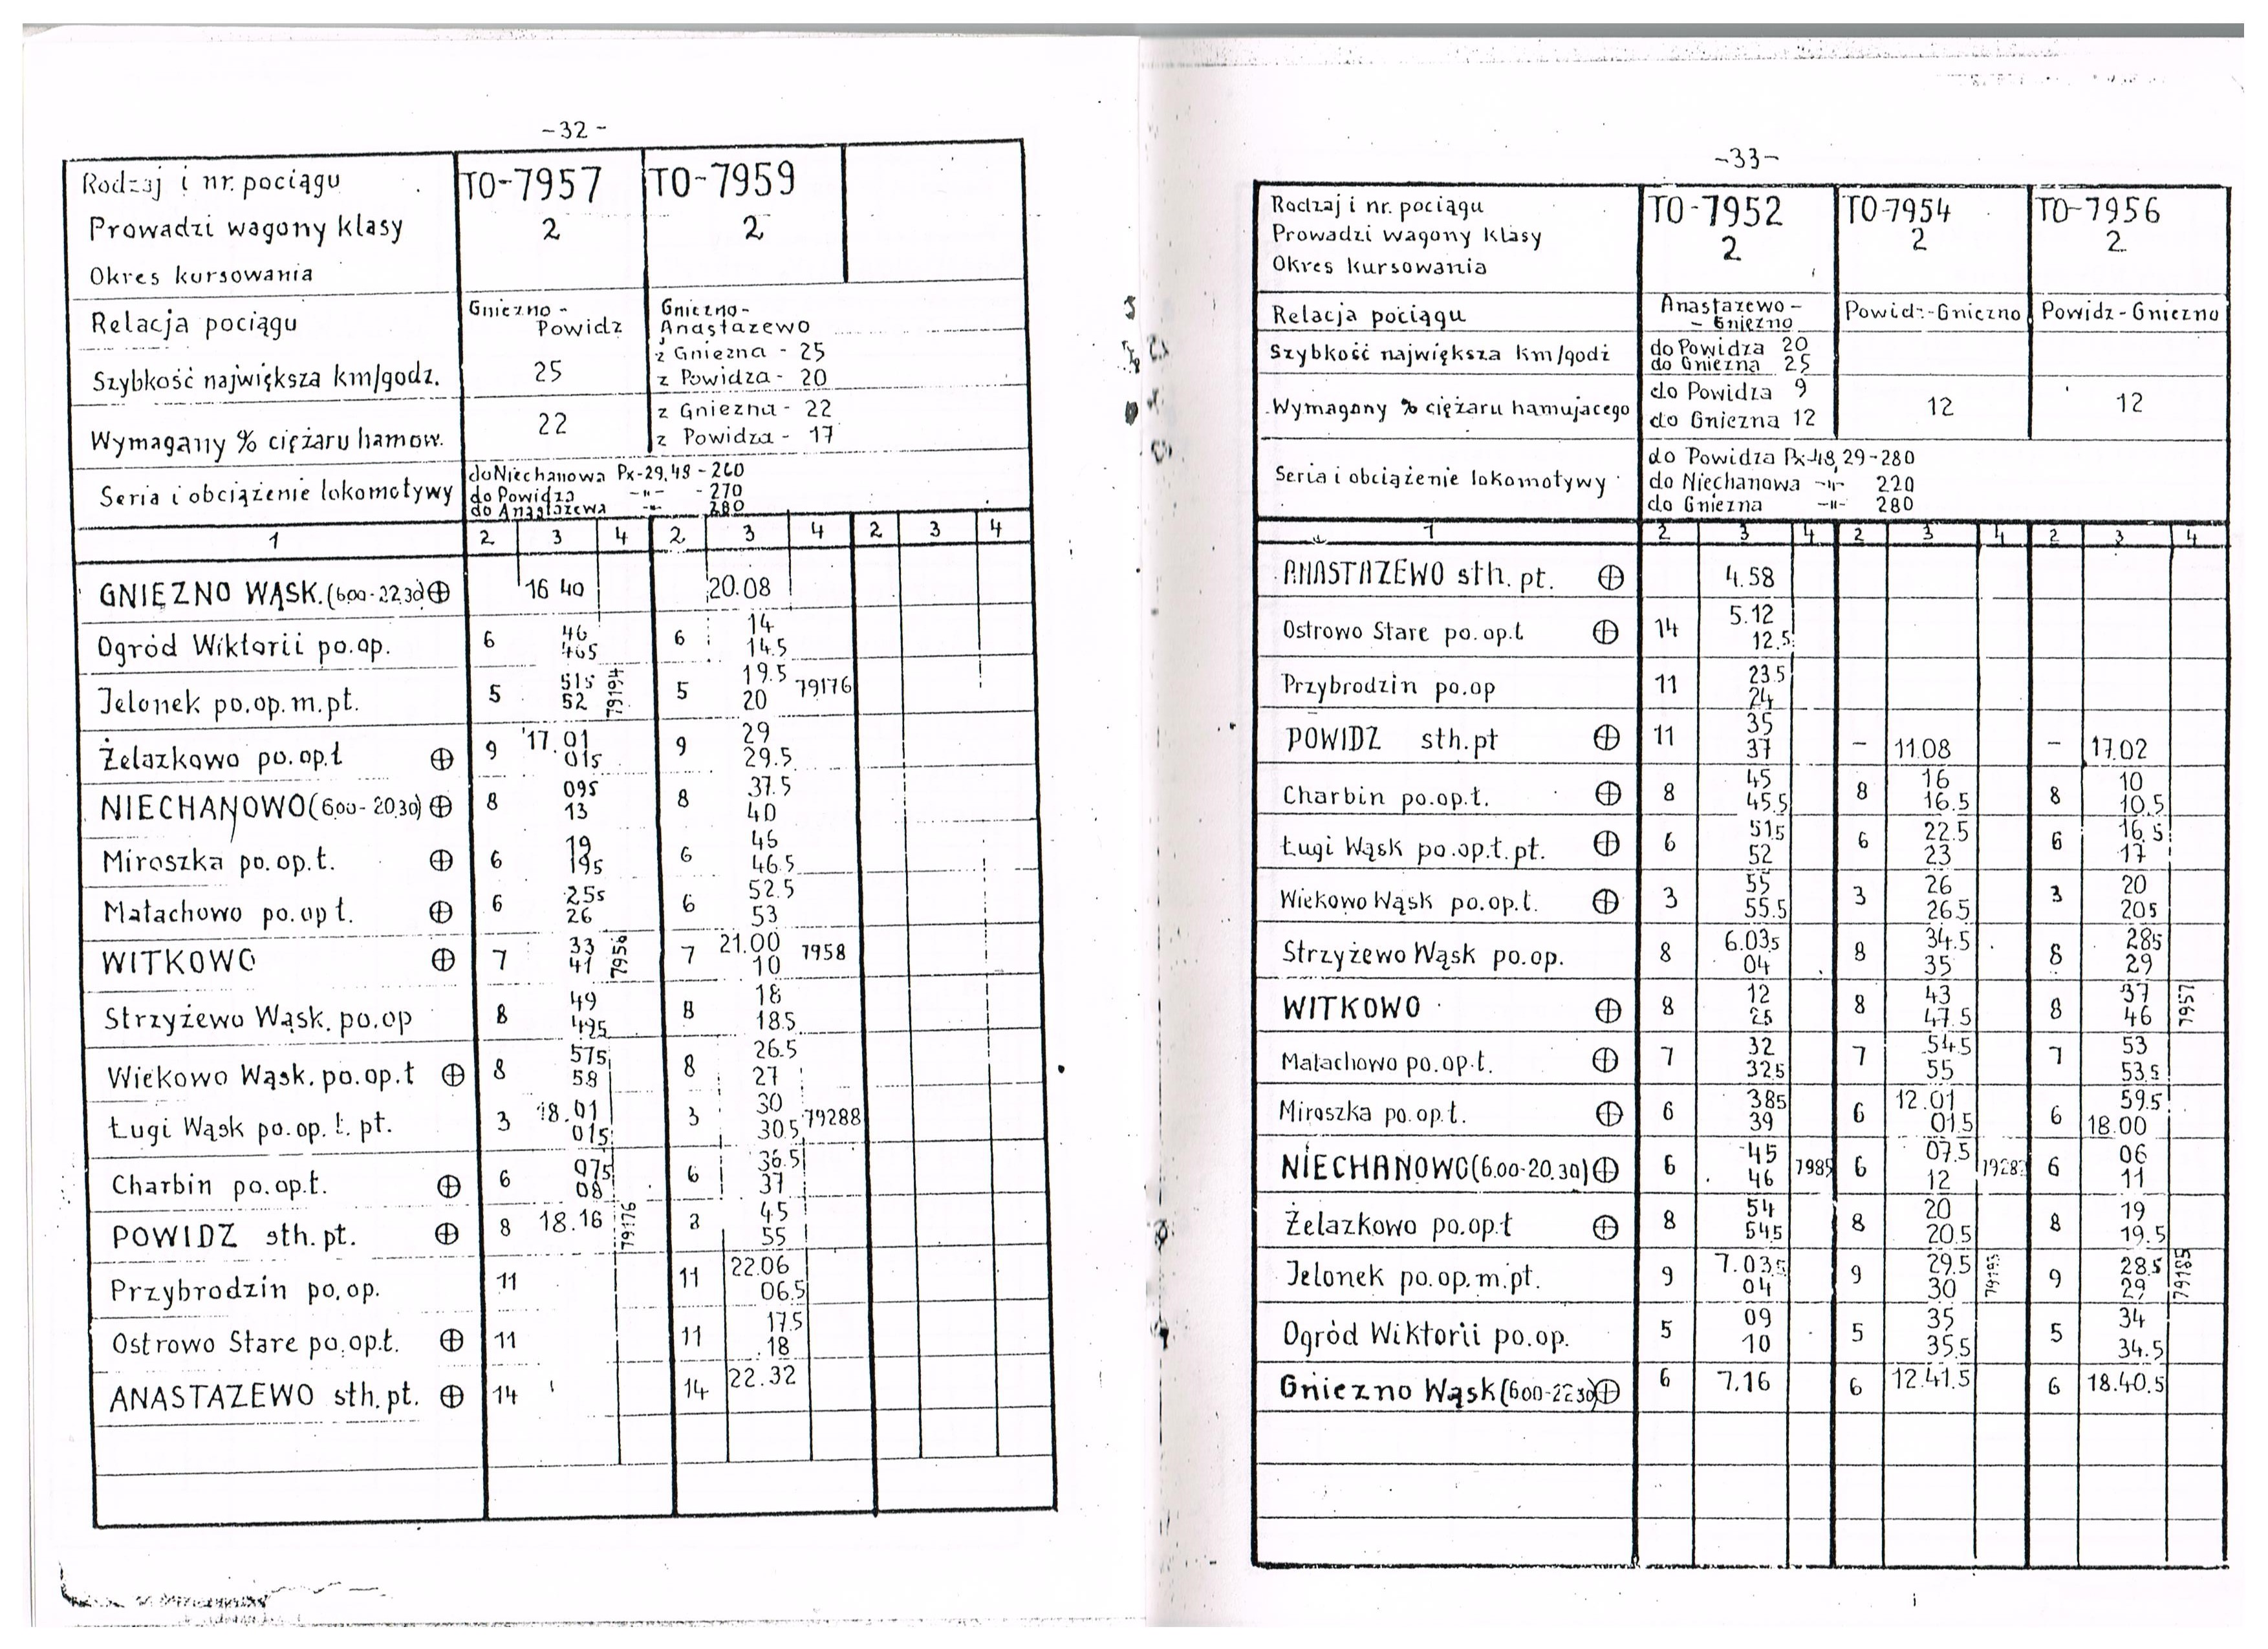 -32-
Rodzaj i nr. pociągu TO-7957 TO-7959
Prowadzi wagony klasy 2 2
Okres kursowania
Relacja pociągu Gniezno - Powidz Gniezno - Anastazewo
Szybkość największa km/godz. 25 z Gniezna - 25 z Powidza - 20
Wymagany % ciężaru hamow. 22 z Gniezna - 22 z Powidza - 17
Seria i obciążenie lokomotywy do Niechanowa Px-29,48 - 260
do Powidza -"- - 270
do Anastazewa -"- 280
1 2 3 4 2 3 4 2 3 4
GNIEZNO WĄSK. (600-22.30) ⊕ 16 40 20.08
Ogród Wiktorii po.op. 6 46 465 6 14 14.5
Jelonek po.op.m.pt. 5 515 52 79194 5 19.5 20 79176
Żelazkowo po.op.ł ⊕ 9 17.01 015 9 29 29.5
NIECHANOWO (600-20.30) ⊕ 8 095 13 8 37.5 40
Miroszka po.op.ł. ⊕ 6 19 195 6 46 46.5
Małachowo po.op ł. ⊕ 6 255 26 6 52.5 53
WITKOWO ⊕ 7 33 41 7956 7 21.00 10 7958
Strzyżewo Wąsk. po.op 8 49 495 8 18 18.5
Wiekowo Wąsk. po.op.ł ⊕ 8 575 58 8 26.5 27
Ługi Wąsk po.op.ł. pt. 3 18.01 015 3 30 30.5 79288
Charbin po.op.ł. ⊕ 6 075 08 6 36.5 37
POWIDZ sth.pt. ⊕ 8 18.16 79176 8 45 55
Przybrodzin po.op. 11 11 22.06 06.5
Ostrowo Stare po.op.ł. ⊕ 11 11 17.5 18
ANASTAZEWO sth.pt. ⊕ 14 14 22.32
-33-
Rodzaj i nr. pociągu TO-7952 TO-7954 TO-7956
Prowadzi wagony klasy 2 2 2
Okres kursowania
Relacja pociągu Anastazewo - - Gniezno Powidz-Gniezno Powidz-Gniezno
Szybkość największa km/godz do Powidza 20 do Gniezna 25
Wymagany % ciężaru hamującego do Powidza 9 do Gniezna 12 12 12
Seria i obciążenie lokomotywy do Powidza Px-48,29-280
do Niechanowa -"- 220
do Gniezna -"- 280
1 2 3 4 2 3 4 2 3 4
ANASTAZEWO sth. pt. ⊕ 4.58
Ostrowo Stare po.op.ł ⊕ 14 5.12 12.5
Przybrodzin po.op 11 23.5 24
POWIDZ sth.pt ⊕ 11 35 37 - 11.08 - 17.02
Charbin po.op.ł. ⊕ 8 45 45.5 8 16 16.5 8 10 10.5
Ługi Wąsk po.op.ł.pt. ⊕ 6 515 52 6 22.5 23 6 16.5 17
Wiekowo Wąsk po.op.ł. ⊕ 3 55 55.5 3 26 26.5 3 20 205
Strzyżewo Wąsk po.op. 8 6.035 04 8 34.5 35 8 285 29
WITKOWO ⊕ 8 12 25 8 43 47.5 8 37 46 7957
Małachowo po.op.ł. ⊕ 7 32 325 7 54.5 55 7 53 53.5
Miroszka po.op.ł. ⊕ 6 385 39 6 12.01 01.5 6 59.5 18.00
NIECHANOWO (6.00-20.30) ⊕ 6 45 46 7985 6 07.5 12 6 06 11
Żelazkowo po.op.ł ⊕ 8 54 545 8 20 20.5 8 19 19.5
Jelonek po.op.m.pt. 9 7.035 04 9 29.5 30 79193 9 28.5 29 79785
Ogród Wiktorii po.op. 5 09 10 5 35 35.5 5 34 34.5
Gniezno Wąsk (600-2230) ⊕ 6 7.16 6 12.41.5 6 18.40.5